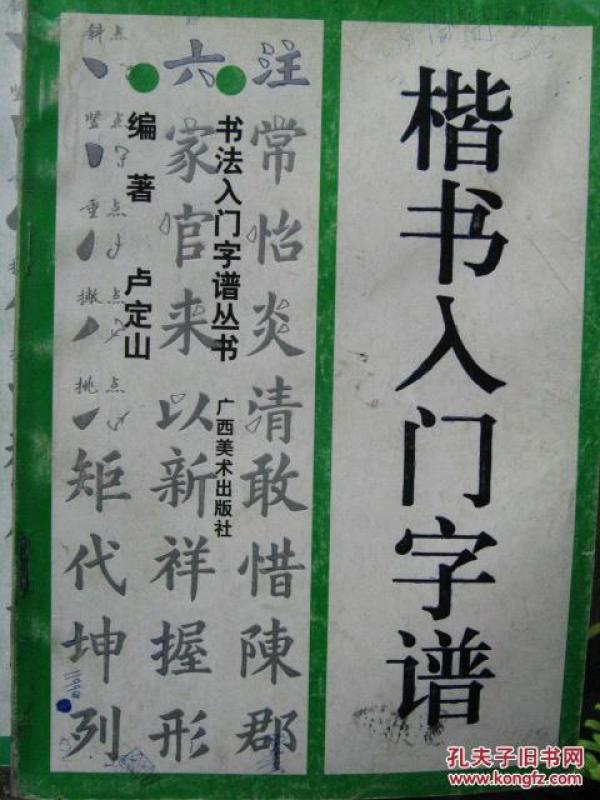 楷书入门字谱
注常怡炎清敢惜陳郡
书法入门字谱丛书
广西美术出版社
六家官来以新祥握形
编著 卢定山
斜点
竖点
重点
撇点
挑点
矩代坤列
孔夫子旧书网
www.kongfz.com